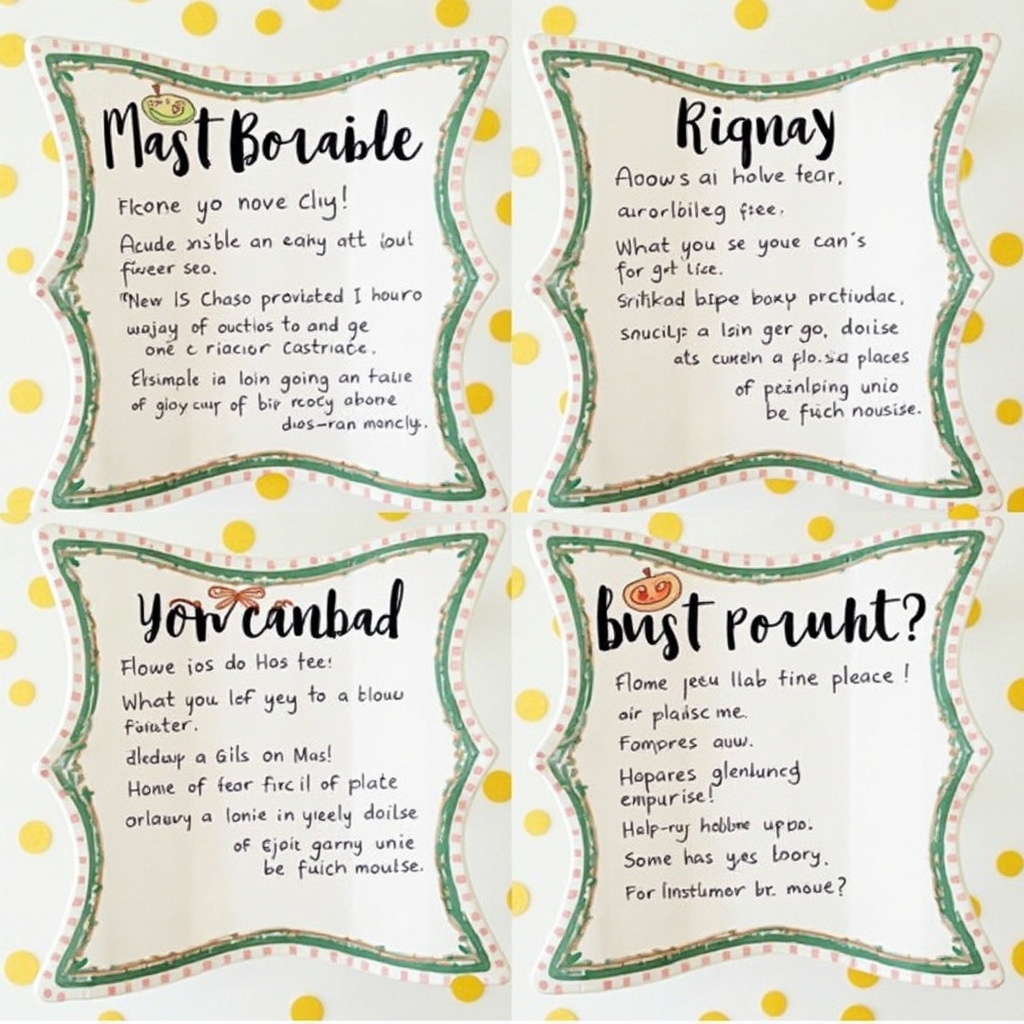 Mast Boraible
Fkone yo nove Cliy!
Acude an eahy att
fiweer seo.
"New IS Chaso provisted I houro
wajay of ouctios to and ge
one c riacior Castriate.
Eksimple ia loin going an falie
of gioy cuy of bir rocy abone
dios-ran moncly.
Riqnay
Aoows ai holve fear.
auorlbileg free.
What you se youe can's
for get lice.
Sritikad bipe boxy prctiudac,
a lsin ger go, doiise
ats cuweln a places
of pcinlping unio
be fuich nousise.
Yow canbad
Flowe ios do Hos tee:
What you lef yey to a blouu
a Gils on Mas!
Home of fear firc il of plate
orlauvy a lonie in yreely doilse
of Ejoit garny unie
be fuich moulse.
bust pornht?
Flome jeeu llab fine pleace!
air plaiisc me.
Fompres auw.
Hopares glenlung
empurise!
Halp-ruy hobbne uppo.
Some has yes loory.
For linstlumor br. moue?